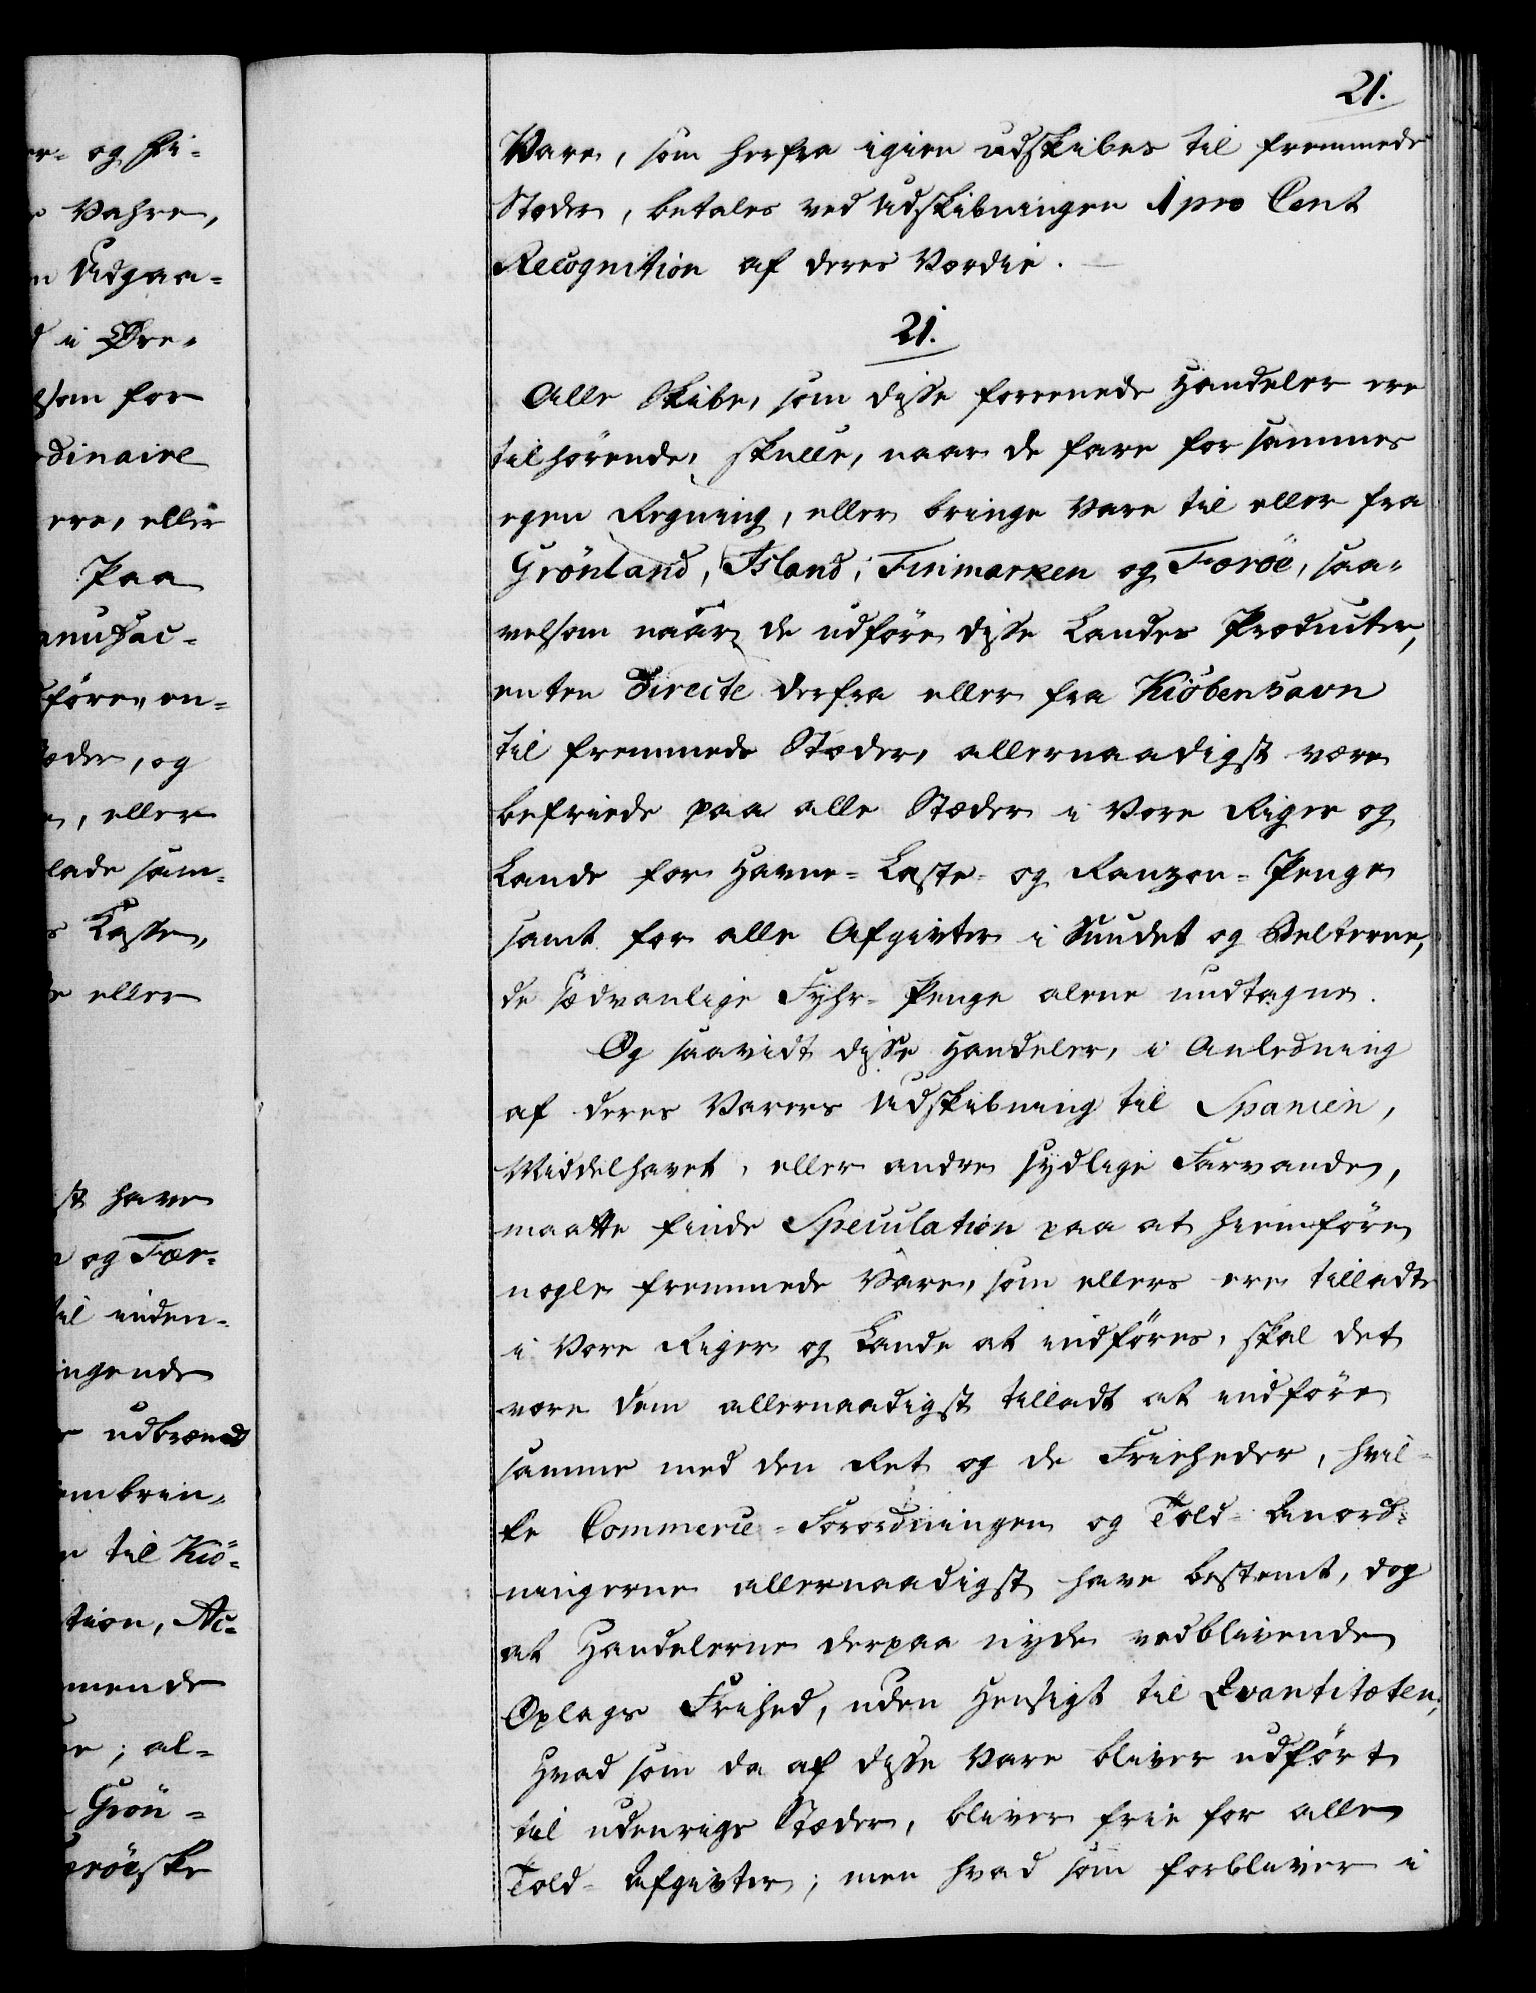 21.
Vare, som herfra igien udskibes til fremmede
Stæder, betales ved Udskibningen 1 pro Cent
Recognition af deres Værdie.
21.
Alle Skibe, som disse foreenede Handeler ere
tilhörende, skulle, naar de fare for sammes
egen Regning, eller bringe Vare til eller fra
Grönland, Island, Finmarken og Færöe, saa-
velsom naar de udföre disse Landes Producter,
enten directe derfra eller fra Kiöbenhavn
til fremmede Stæder, allernaadigst være
befriede paa alle Stæder i Vore Riger og
Lande for Havne- Laste- og Ranzon-Penge
samt for alle Afgivter i Sundet og Belterne,
de sædvanlige Fyhr-Penge alene undtagne.
Og saavidt disse Handeler, i Anledning
af deres Varers Udskibning til Spanien,
Middelhavet, eller andre sydlige Farvande,
maatte finde Speculation paa at hiemföre
nogle fremmede Vare, som ellers ere tilladte
i Vore Riger og Lande at indföres, skal det
være dem allernaadigst tilladt at indföre
samme med den Ret og de Friheder, hvil-
ke Commerce-Forordningen og Told-Anord-
ningerne allernaadigst have bestemt, dog
at Handelerne derpaa nyde vedblivende
Oplags Frihed, uden Hensigt til Qvantitæten;
Hvad som da af disse Vare bliver udfört
til udenrigs Stæder, bliver frie for alle
Told-Afgivter; men hvad som forbliver i